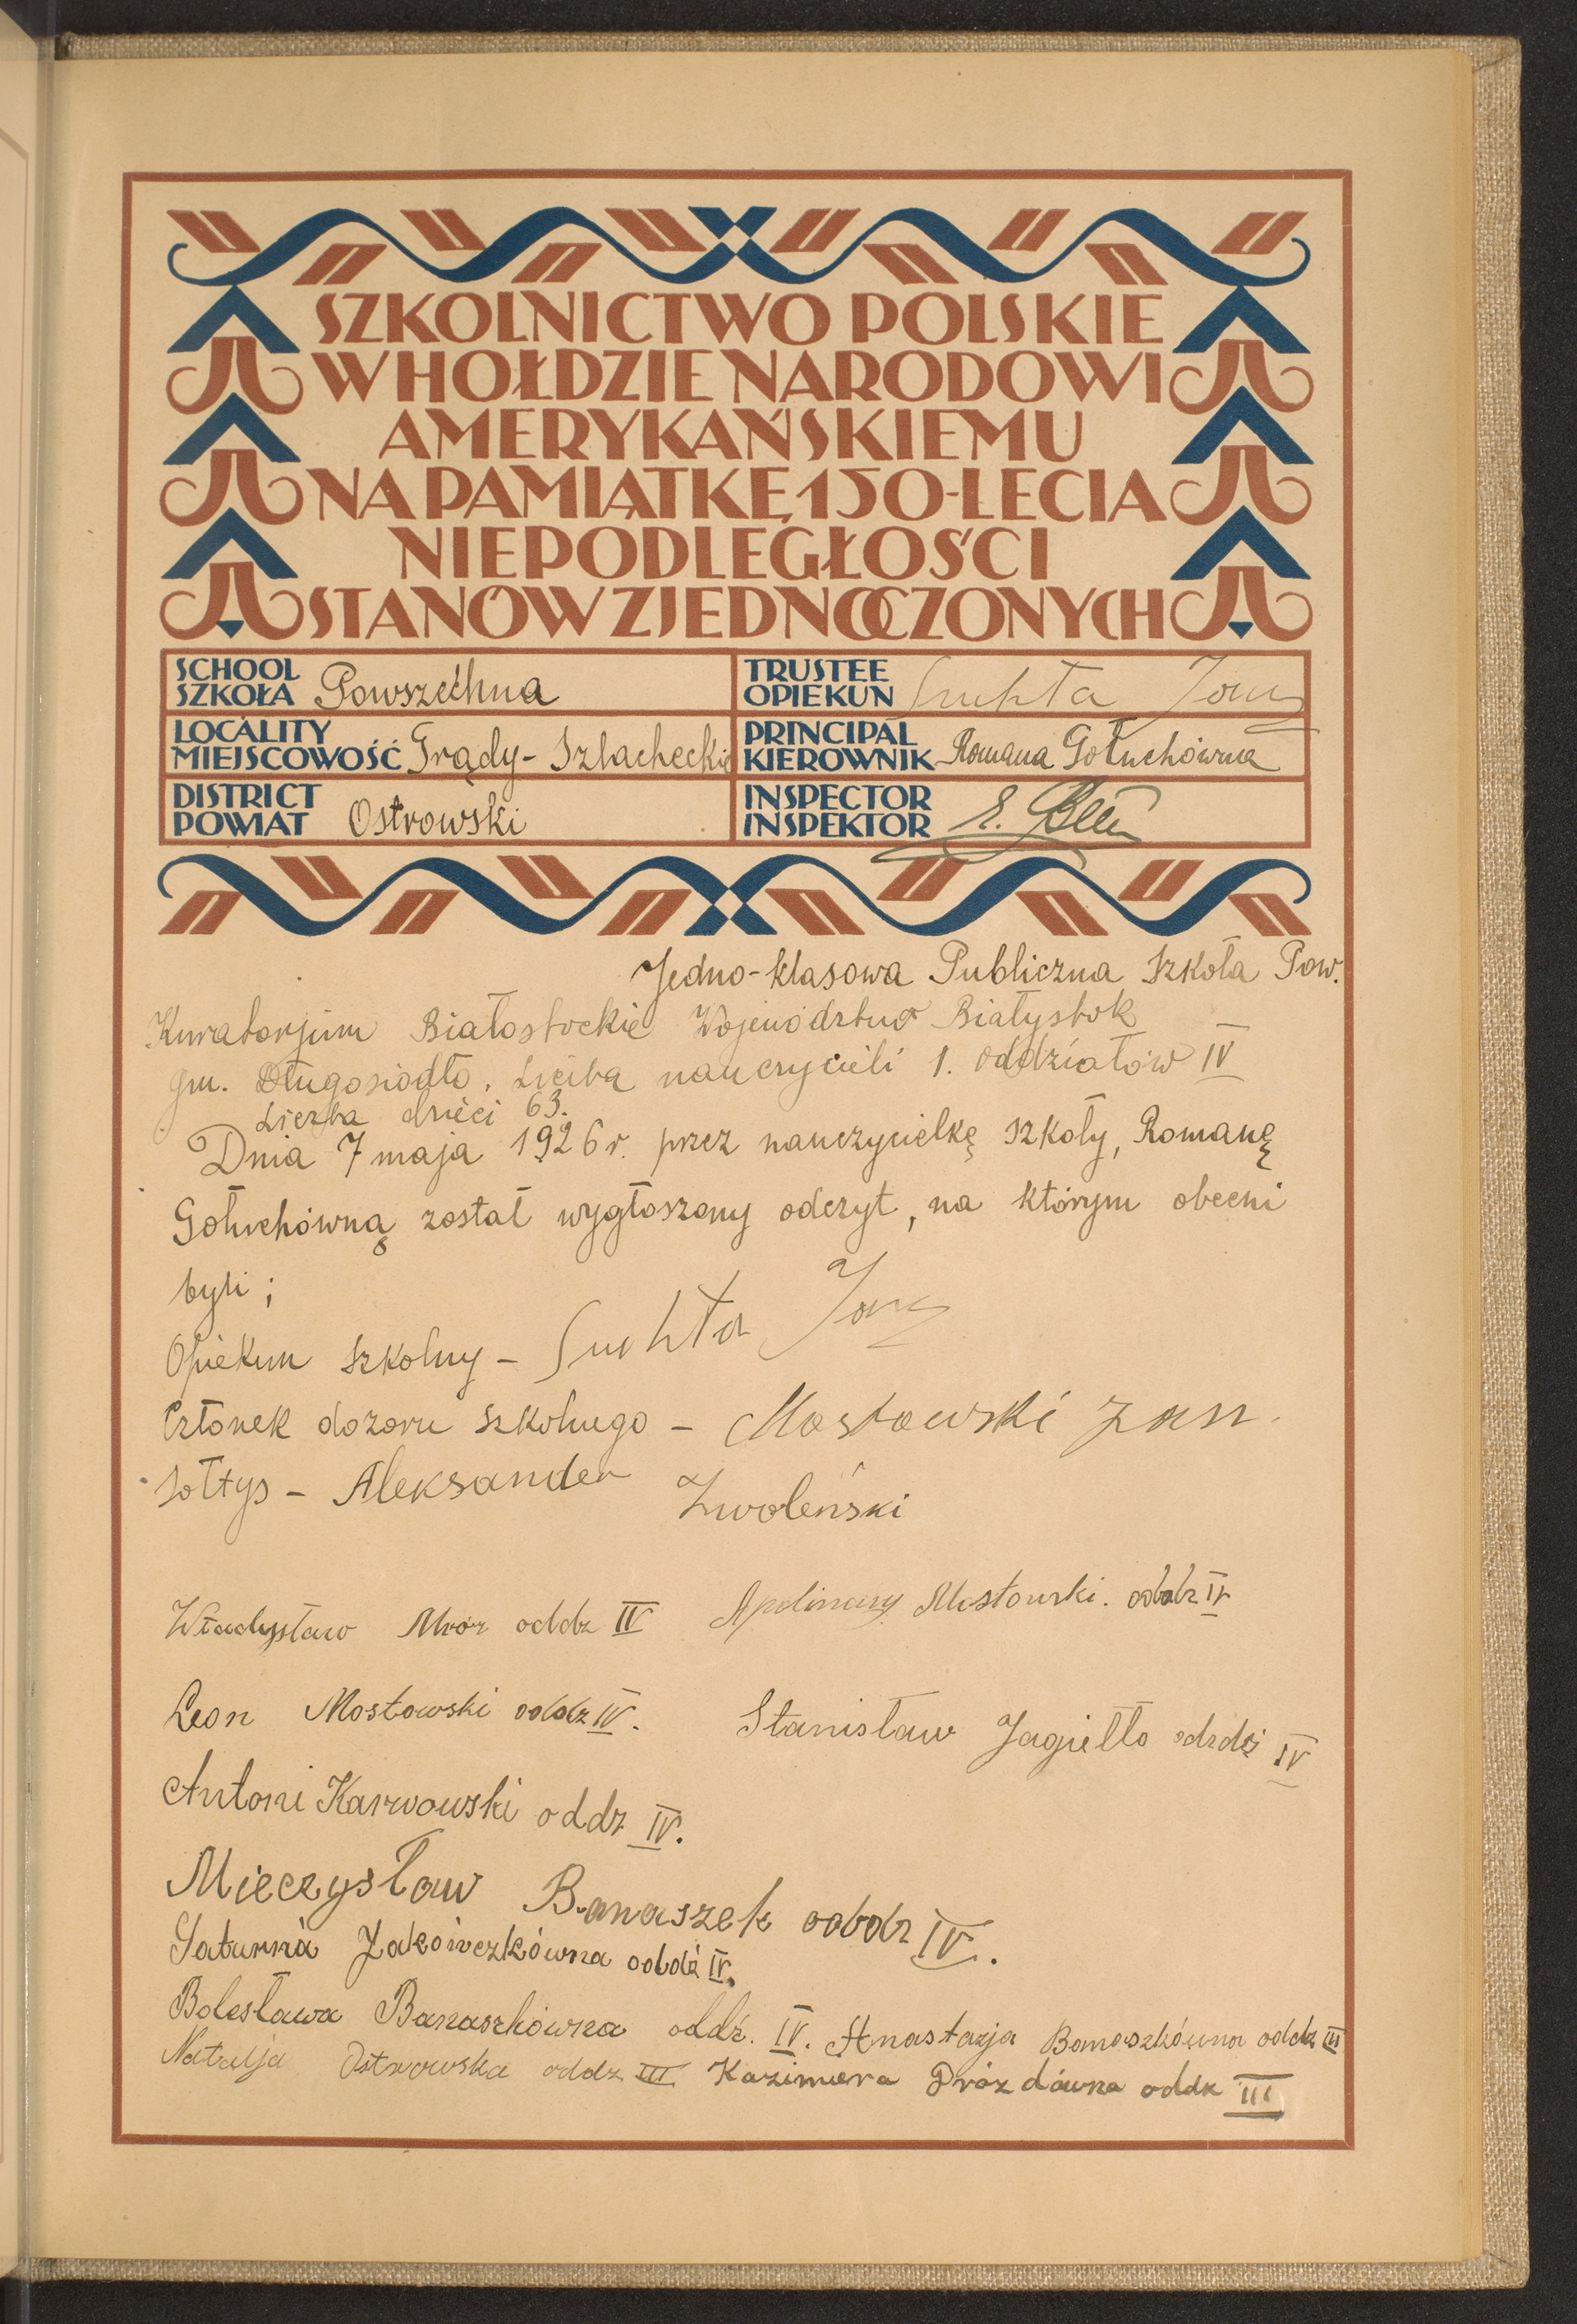 SZKOLNICTWO POLSKIE
W HOŁDZIE NARODOWI
AMERYKAŃSKIEMU
NA PAMIĄTKĘ 150-LECIA
NIEPODLEGŁOŚCI
STANÓW ZJEDNOCZONYCH
SCHOOL
SZKOŁA Powszechna
TRUSTEE
OPIEKUN Suchta Jan
LOCALITY
MIEJSCOWOŚĆ Grądy-Szlacheckie
PRINCIPAL
KIEROWNIK Romana Gołuchówna
DISTRICT
POWIAT Ostrowski
INSPECTOR
INSPEKTOR E.
Jedno-klasowa Publiczna Szkoła Pow.
Kuratorjum Białostockie Województwo Białystok
gm. Długosiodło. Liczba nauczycieli 1. oddziałów IV
Liczba dzieci 63.
Dnia 7 maja 1926 r. przez nauczycielkę szkoły, Romanę
Gołuchówną został wygłoszony odczyt, na którym obecni
byli;
Opiekun szkolny - Suchta Jan
Członek dozoru szkolnego - Mostowski Jan.
Sołtys - Aleksander Zwoleński
Władysław Mróz oddz IV Apolinary Mostowski. oddz IV
Leon Mostowski oddz IV. Stanisław Jagiełło oddz IV
Antoni Karwowski oddz IV.
Mieczysław Banaszek oddz IV.
Saturna Jakówczkówna oddź IV.
Bolesława Banaszkówna oddź. IV. Anastazja Banaszkówna oddz III
Natalja Ostrowska oddz III Kazimiera Drózdówna oddz III